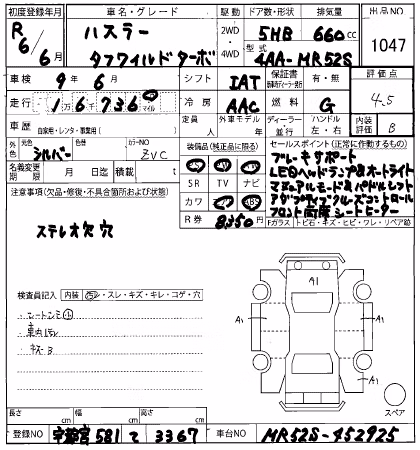 初度登録年月 車名・グレード 駆動 ドア数・形状 排気量 出品NO
R6/6月 ハスラー 2WD・4WD 5HB 660cc 1047
タフワイルドターボ 型式 4AA-MR52S
車検 9年6月 シフト IAT 保証書 有・無 評価点
走行 1万6736 マイル 冷房 AAC 燃料 G 4.5
車歴 自家用・レンタ・事業用( ) 定員 人 外車モデル 年 ディーラー 並行 ハンドル 左・右 内装評価 B
外色 元色 シルバー 色替 カラーNO ZVC 装備品(純正品に限る) セールスポイント(正常に作動するもの)
名義変更期限 月 日 積載 t
SR TV ナビ
カワ ABS
R券 8350円
ブレーキサポート
LEDヘッドランプ&オートライト
マニュアルモード&パドルシフト
アダプティブクルーズコントロール
フロント席シートヒーター
Fガラス トビ石・キズ・ヒビ・ワレ・リペア跡
注意事項(欠品・修復・不具合箇所および状態)
ステレオ欠 穴
検査員記入 内装 ・スレ・キズ・キレ・コゲ・穴
・シートシミ小
・車内汚レ
・キズ
A1
A1
A1
A1
スペア
長さ cm 幅 cm 高さ cm
登録NO 宇都宮 581 て 3367 車台NO MR52S-452925